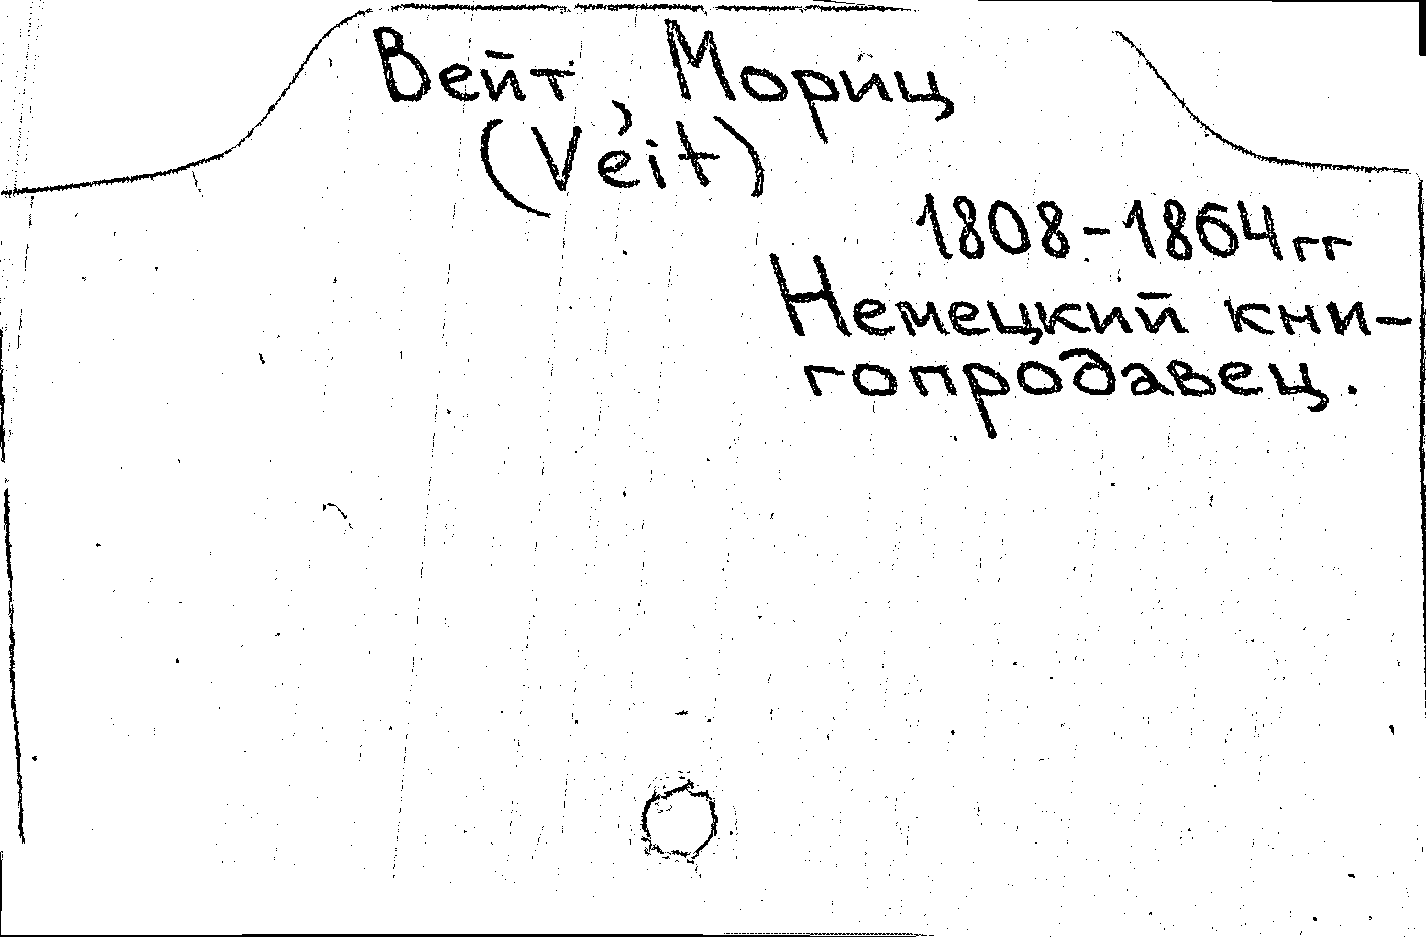 Вейт, Мориц
(Veit)
1808-1864гг
Немецкий кни-
гопродавец.